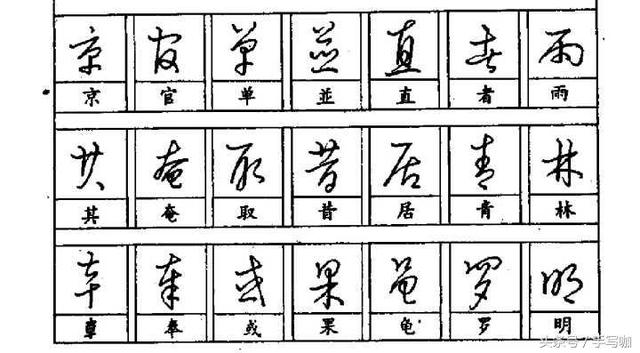 京 官 单 並 直 者 雨
京 官 单 並 直 者 雨
其 奄 取 昔 居 青 林
其 奄 取 昔 居 青 林
奉 或 果 龟 罗 明
奉 或 果 龟 罗 明
头条号 / 手写咖